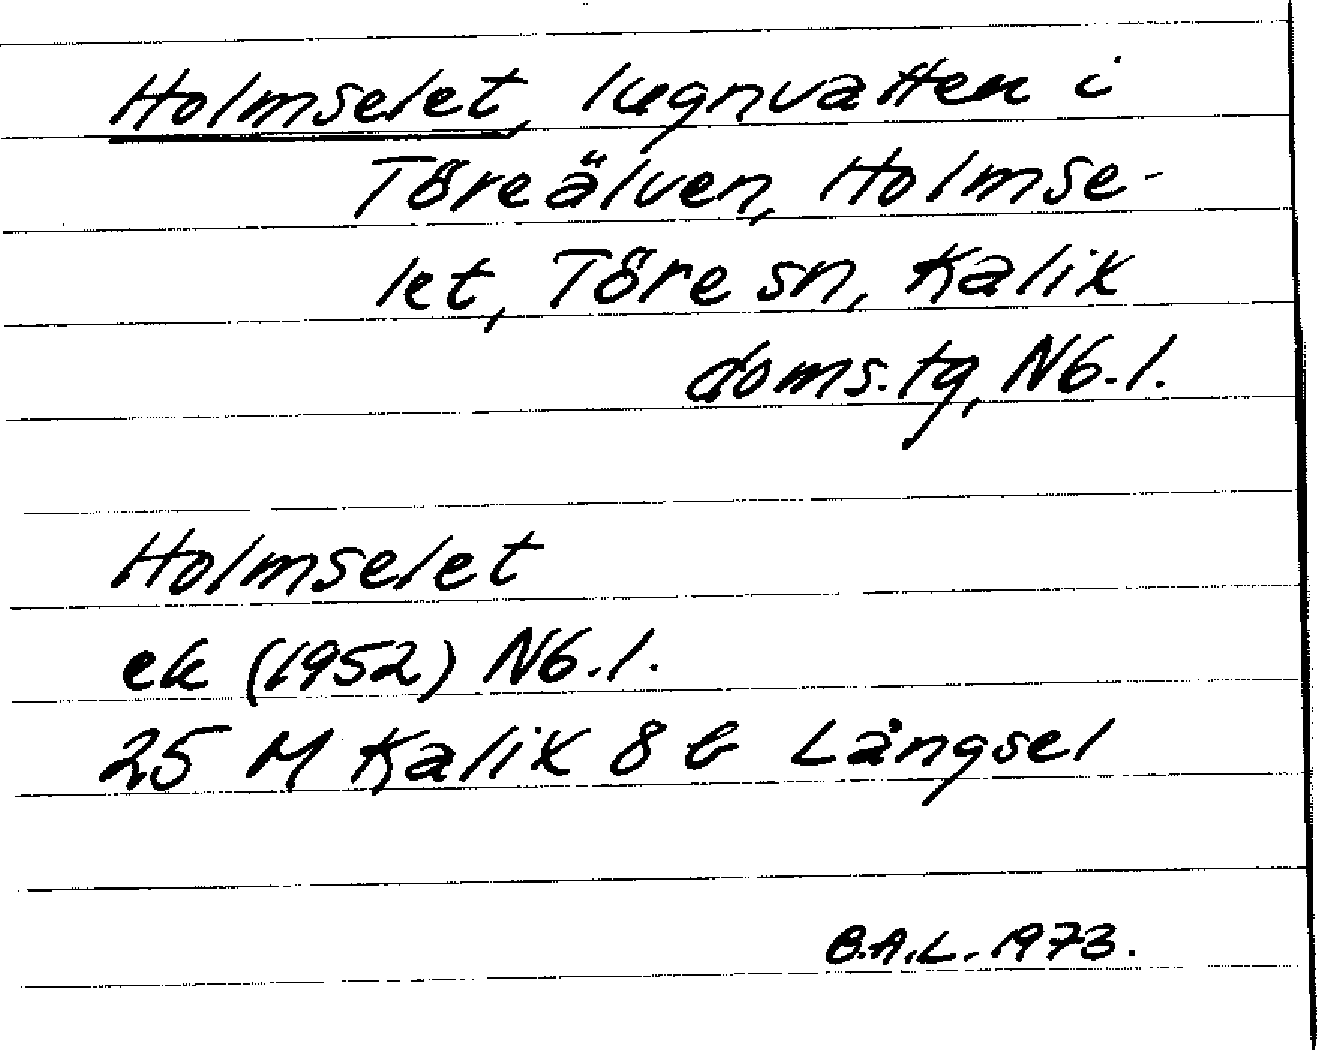 Holmselet, lugnvatten i
Töreälven, Holmse-
let, Töre sn, Kalix
doms.tg, Nb.l.
Holmselet
ek (1952) Nb.l.
25 M Kalix 8 b Långsel
B.A.L. 1973.